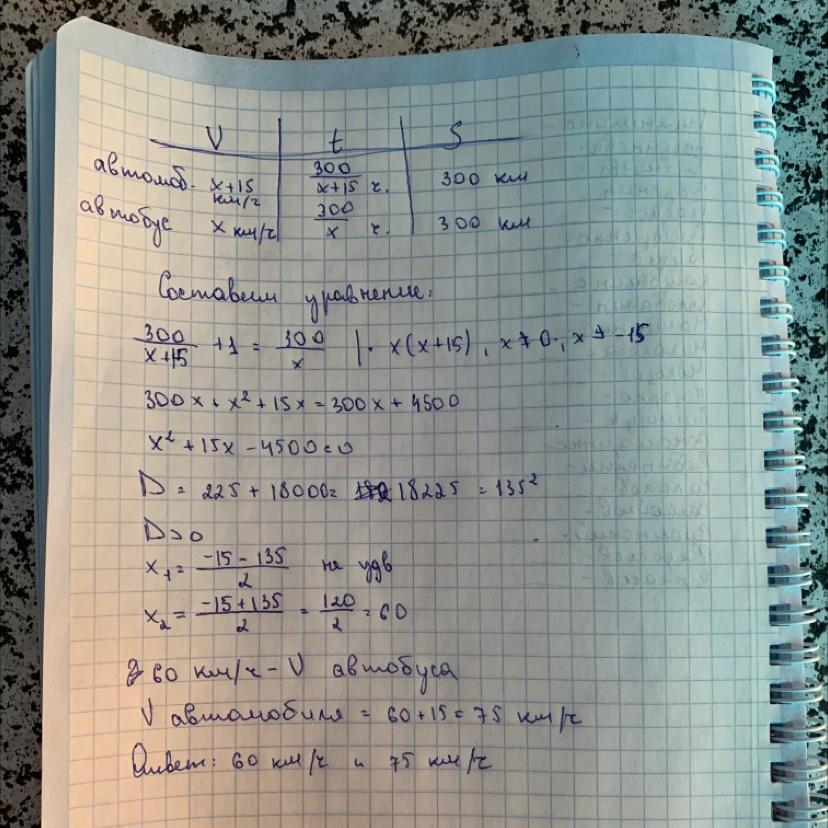 V t S
автомоб. x+15 км/ч 300/x+15 ч. 300 км
автобус x км/ч 300/x ч. 300 км
Составим уравнение:
300/x+15 + 1 = 300/x | · x(x+15), x≠0, x≠-15
300x + x² + 15x = 300x + 4500
x² + 15x - 4500 = 0
D = 225 + 18000 = 18225 = 135²
D>0
x₁ = -15-135/2 не удв
x₂ = -15+135/2 = 120/2 = 60
60 км/ч - V автобуса
V автомобиля = 60+15 = 75 км/ч
Ответ: 60 км/ч и 75 км/ч